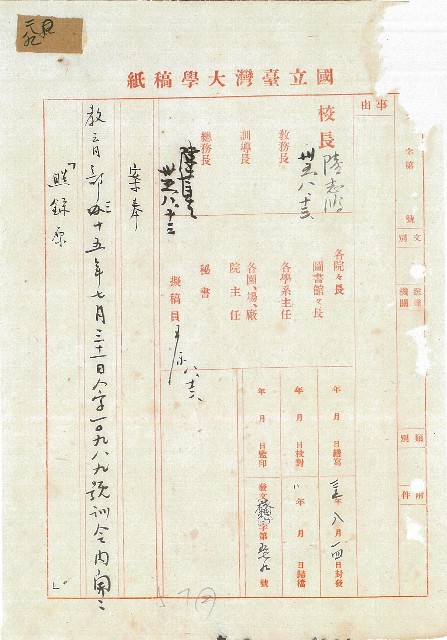 國立臺灣大學稿紙
事由
字第
號
文別
送達
機關
類別
附件
校長
陸志鴻
卅五八、十三
教務長
訓導長
總務長
陳
卅五八、十三
各院長
圖書館長
各學系主任
各園、場、廠
院主任
秘書
擬稿員
八、十六
年月日繕寫
年八月一四日封發
年月日校對
年月日歸檔
年月日監印
發文字第號
案奉
教育部卅十五年七月三十一日人字一〇九八九號訓令內開：
「照錄原」